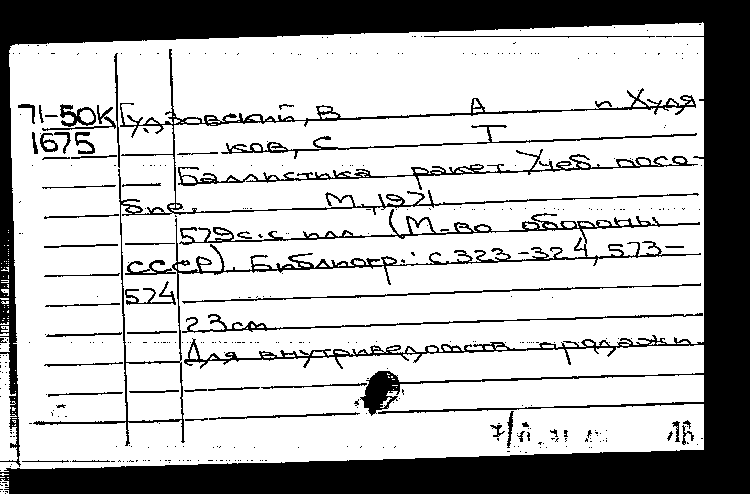 71-50К Гудзовский, В А и Худя-
1675 ков, С Т
Баллистика ракет. Учеб. посо-
бие. М., 1971
579 с. с илл. (М-во обороны
СССР). Библиогр.: с. 323-324, 573-
574
23 см
Для внутриведомств. продажи